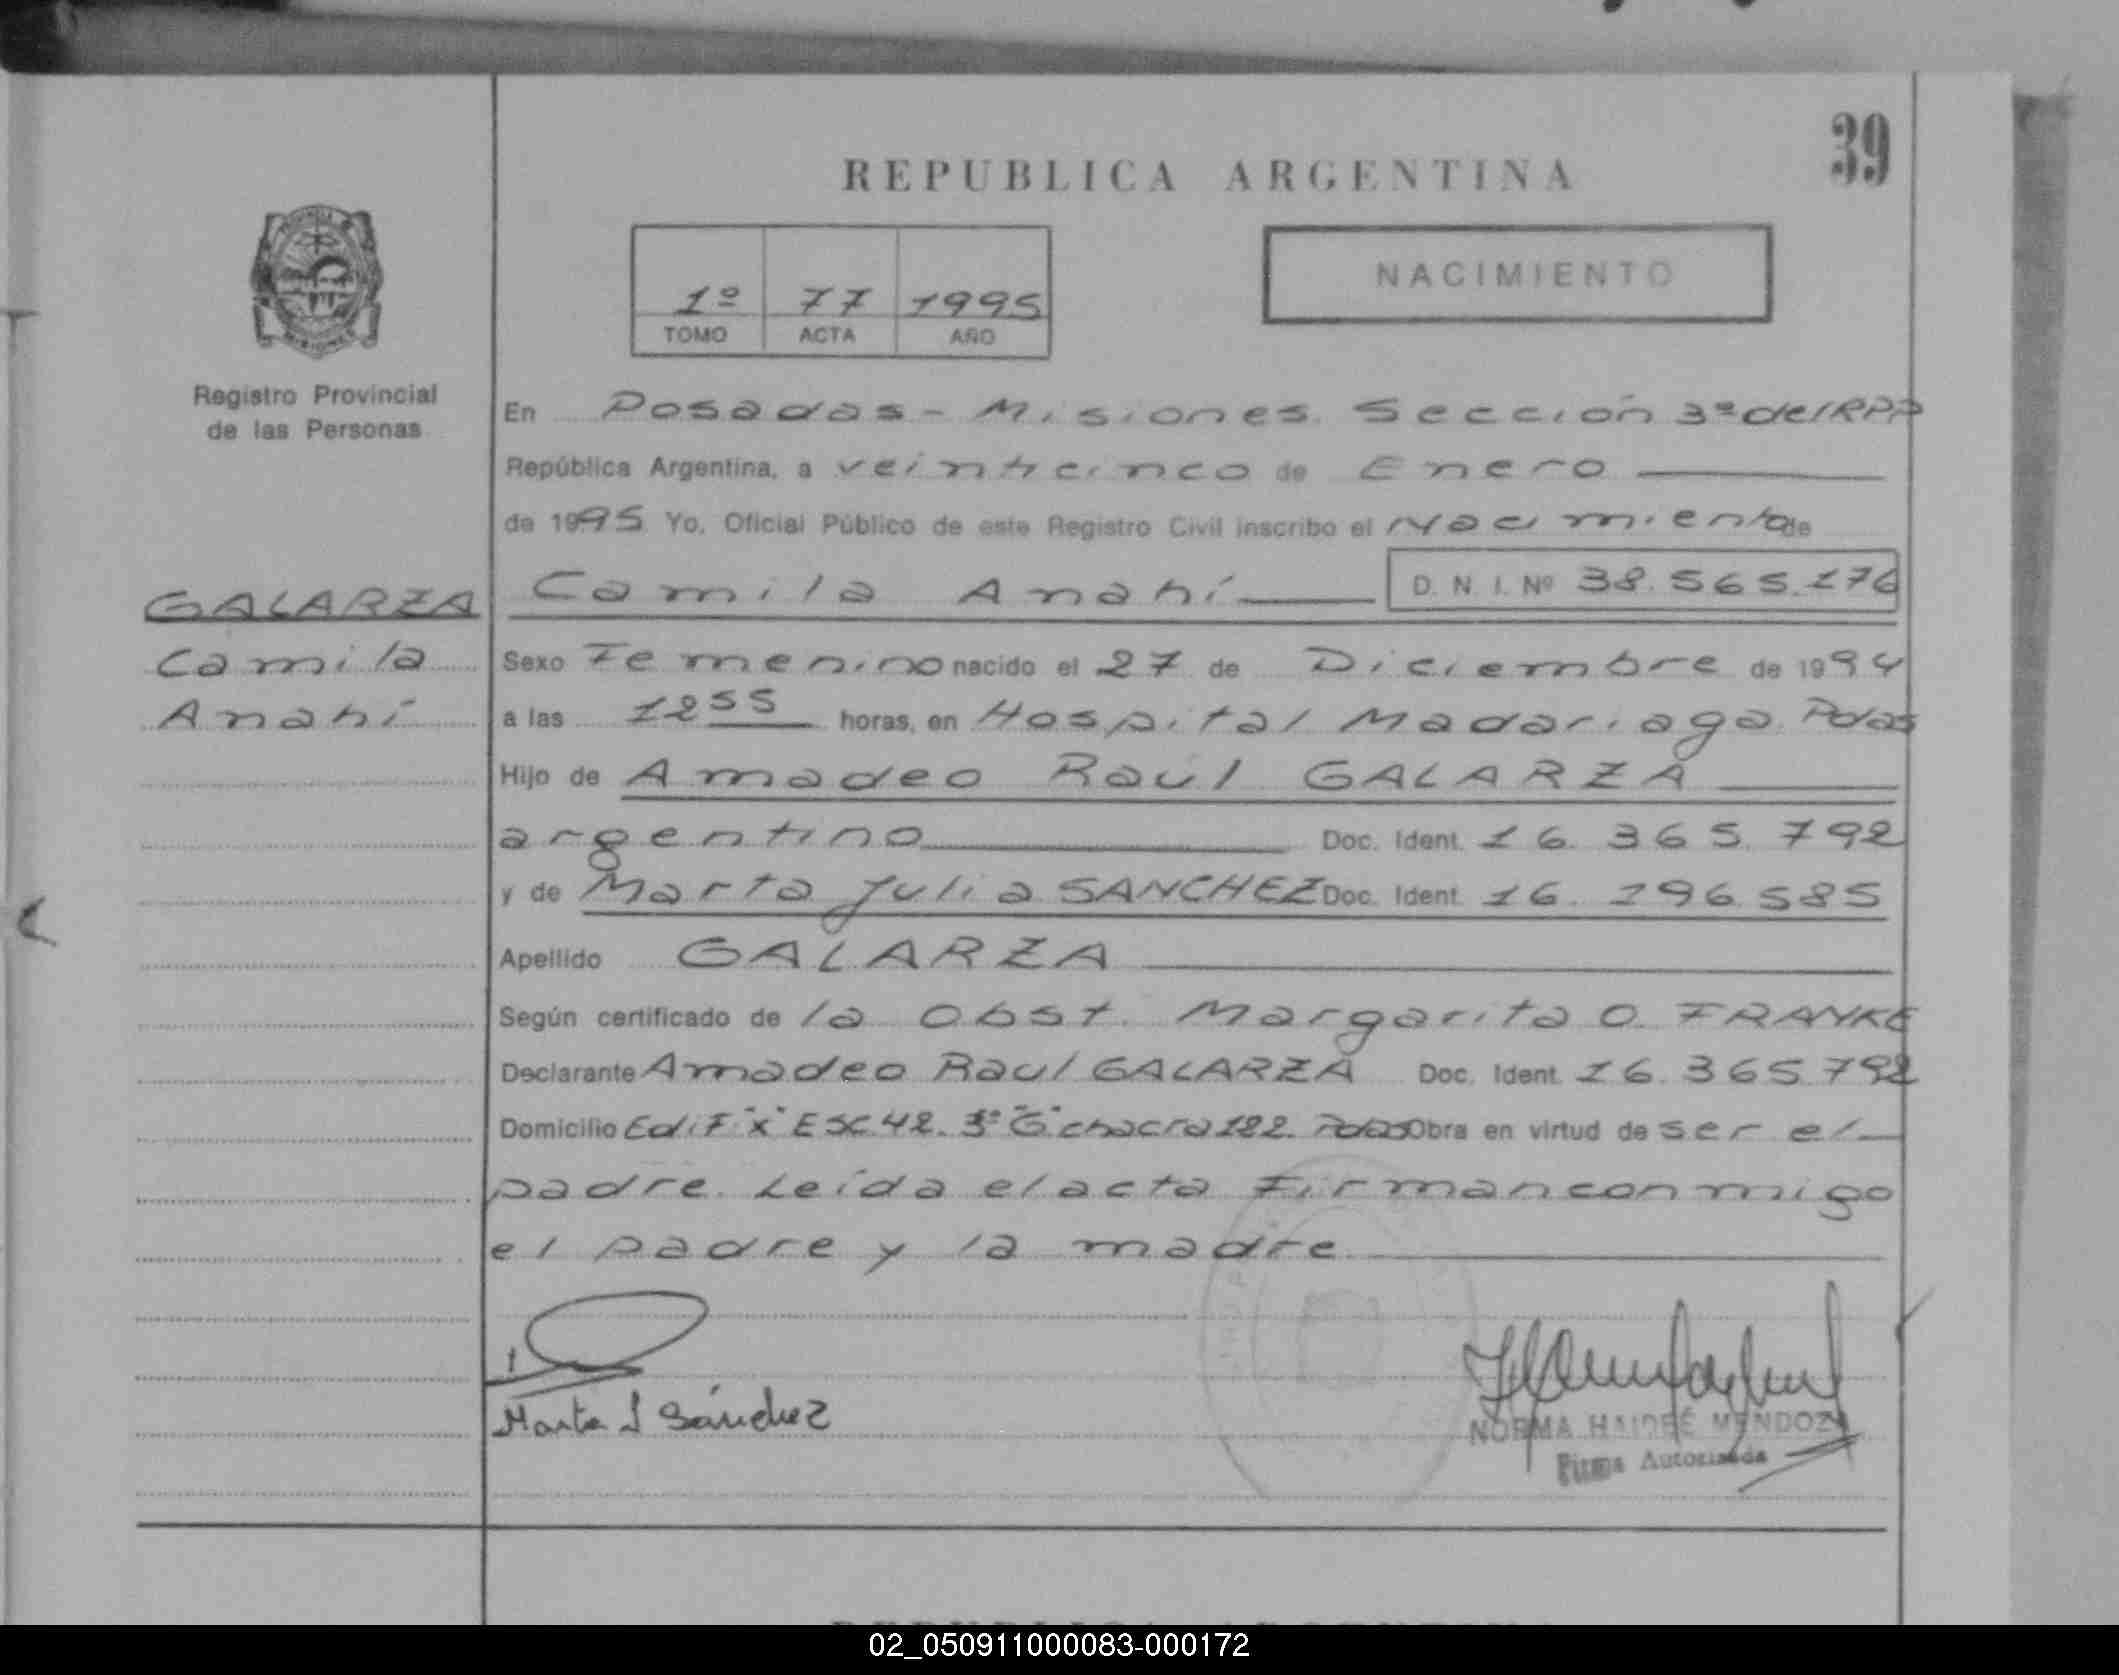 39
REPUBLICA ARGENTINA
1º 77 1995
TOMO ACTA AÑO
NACIMIENTO
PROVINCIA
MISIONES
Registro Provincial
de las Personas
En Posadas - Misiones. Sección 3º del RPP
República Argentina, a veinticinco de Enero
de 1995 Yo, Oficial Público de este Registro Civil inscribo el Nacimiento de
GALARZA Camila Anahí D. N. I. Nº 38.565.176
Camila Sexo Femenino nacido el 27 de Diciembre de 1994
Anahí a las 12 55 horas, en Hospital Madariaga. Pdas
Hijo de Amadeo Raúl GALARZA
argentino Doc. Ident. 16.365.792
y de Marta Julia SANCHEZ Doc. Ident. 16.196.585
Apellido GALARZA
Según certificado de la Obst. Margarita O. FRANKE
Declarante Amadeo Raul GALARZA Doc. Ident. 16.365.792
Domicilio Edif "X" ESC 42. 3º "G" chacra 122. Pdas Obra en virtud de ser el
padre. Leída el acta Firman conmigo
el padre y la madre
Marta J Sánchez
NORMA HAIDEÉ MENDOZA
Firma Autorizada
02_050911000083-000172